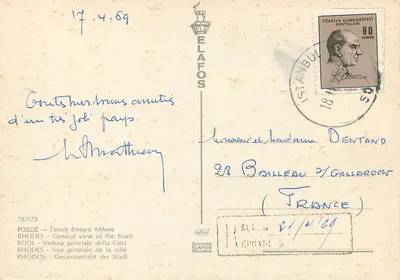 17.4.69
ELAFOS
TÜRKİYE CUMHURİYETİ
POSTALARI
90
KURUŞ
ISTANBUL
18
Toutes mes bonnes amitiés
d'un très joli pays.
Monsieur et Madame DENTAND
28 BAILLEAU s/ GALLARDON
(FRANCE)
787173
ΡΟΔΟΣ - Γενική άποψις πόλεως
RHODES - General view of the town
RODI - Veduta generale della Città
RHODES - Vue générale de la ville
RHODOS - Gesamtansicht der Stadt
ELAFOS